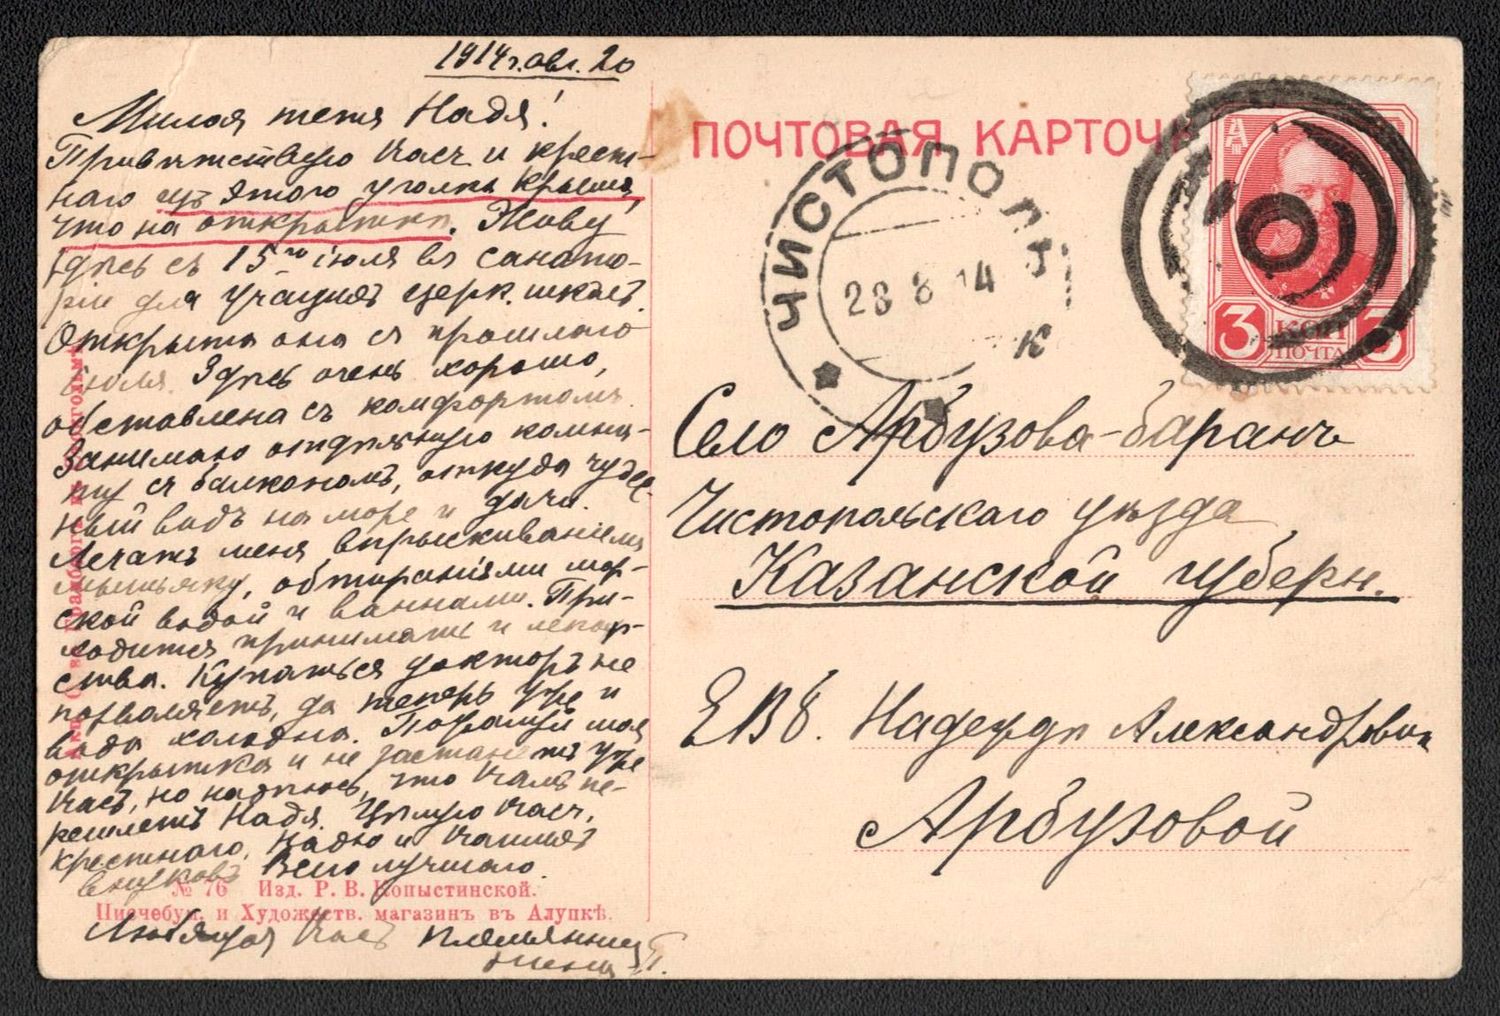 1914 г. авг. 20
Милая тетя Надя!
Привѣтствую Васъ и крест-
наго изъ этого уголка Крыма,
что на открыткѣ. Живу
здѣсь съ 15го іюля въ санато-
ріи для учащихъ церк. школъ.
Открыта она съ прошлаго
іюля. Здѣсь очень хорошо,
обставлена съ комфортомъ.
Занимаю отдѣльную комна-
ту съ балкономъ, откуда чудес-
ный видъ на море и дачи.
Лечатъ меня впрыскиваніемъ
мышьяку, обтираніями мор-
ской водой и ваннами. При-
ходится принимать и лекар-
ства. Купаться докторъ не
позволяетъ, да теперь уже и
вода холодна. Пожалуй моя
открытка и не застанетъ уже
Васъ, но надѣюсь, что Вамъ пе-
решлетъ Надя. Цѣлую Васъ,
крестнаго, Надю и Вашихъ
внуковъ. Всего лучшаго.
Любящая Васъ племянница
№ 76 Изд. Р. В. Копыстинской.
Писчебум. и Художеств. магазинъ въ Алупкѣ.
ПОЧТОВАЯ КАРТОЧК
ЧИСТОПОЛЬ
28 8 14
К
3 КОП 3
ПОЧТА
Село Арбузова-баранъ
Чистопольскаго уѣзда
Казанской губерн.
ЕВБ. Надеждѣ Александровнѣ
Арбузовой